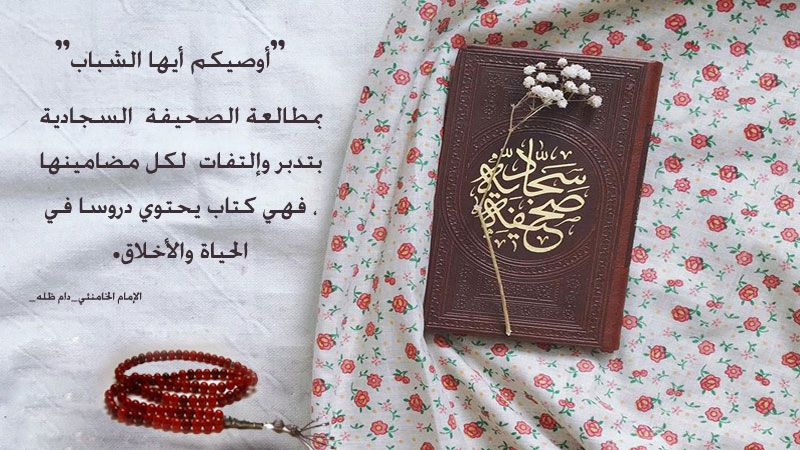 ”أوصيكم أيها الشباب”
بمطالعة الصحيفة السجادية
بتدبر وإلتفات لكل مضامينها
، فهي كتاب يحتوي دروسا في
الحياة والأخلاق.
الإمام الخامنئي_دام ظله_
سجّاديّة
صحيفة